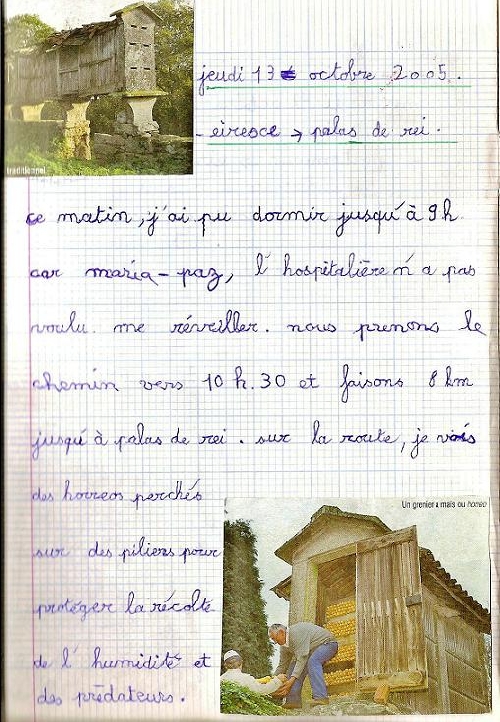 traditionnel
jeudi 13 octobre 2005.
- eiresce → palas de rei.
ce matin, j'ai pu dormir jusqu'à 9h
car maria-paz, l'hospitalière n'a pas
voulu. me réveiller. nous prenons le
chemin vers 10 h.30 et faisons 8 km
jusqu'à palas de rei. sur la route, je vois
des horreos perchés
Un grenier à maïs ou horreo
sur des piliers pour
protéger la récolte
de l'humidité et
des prédateurs.